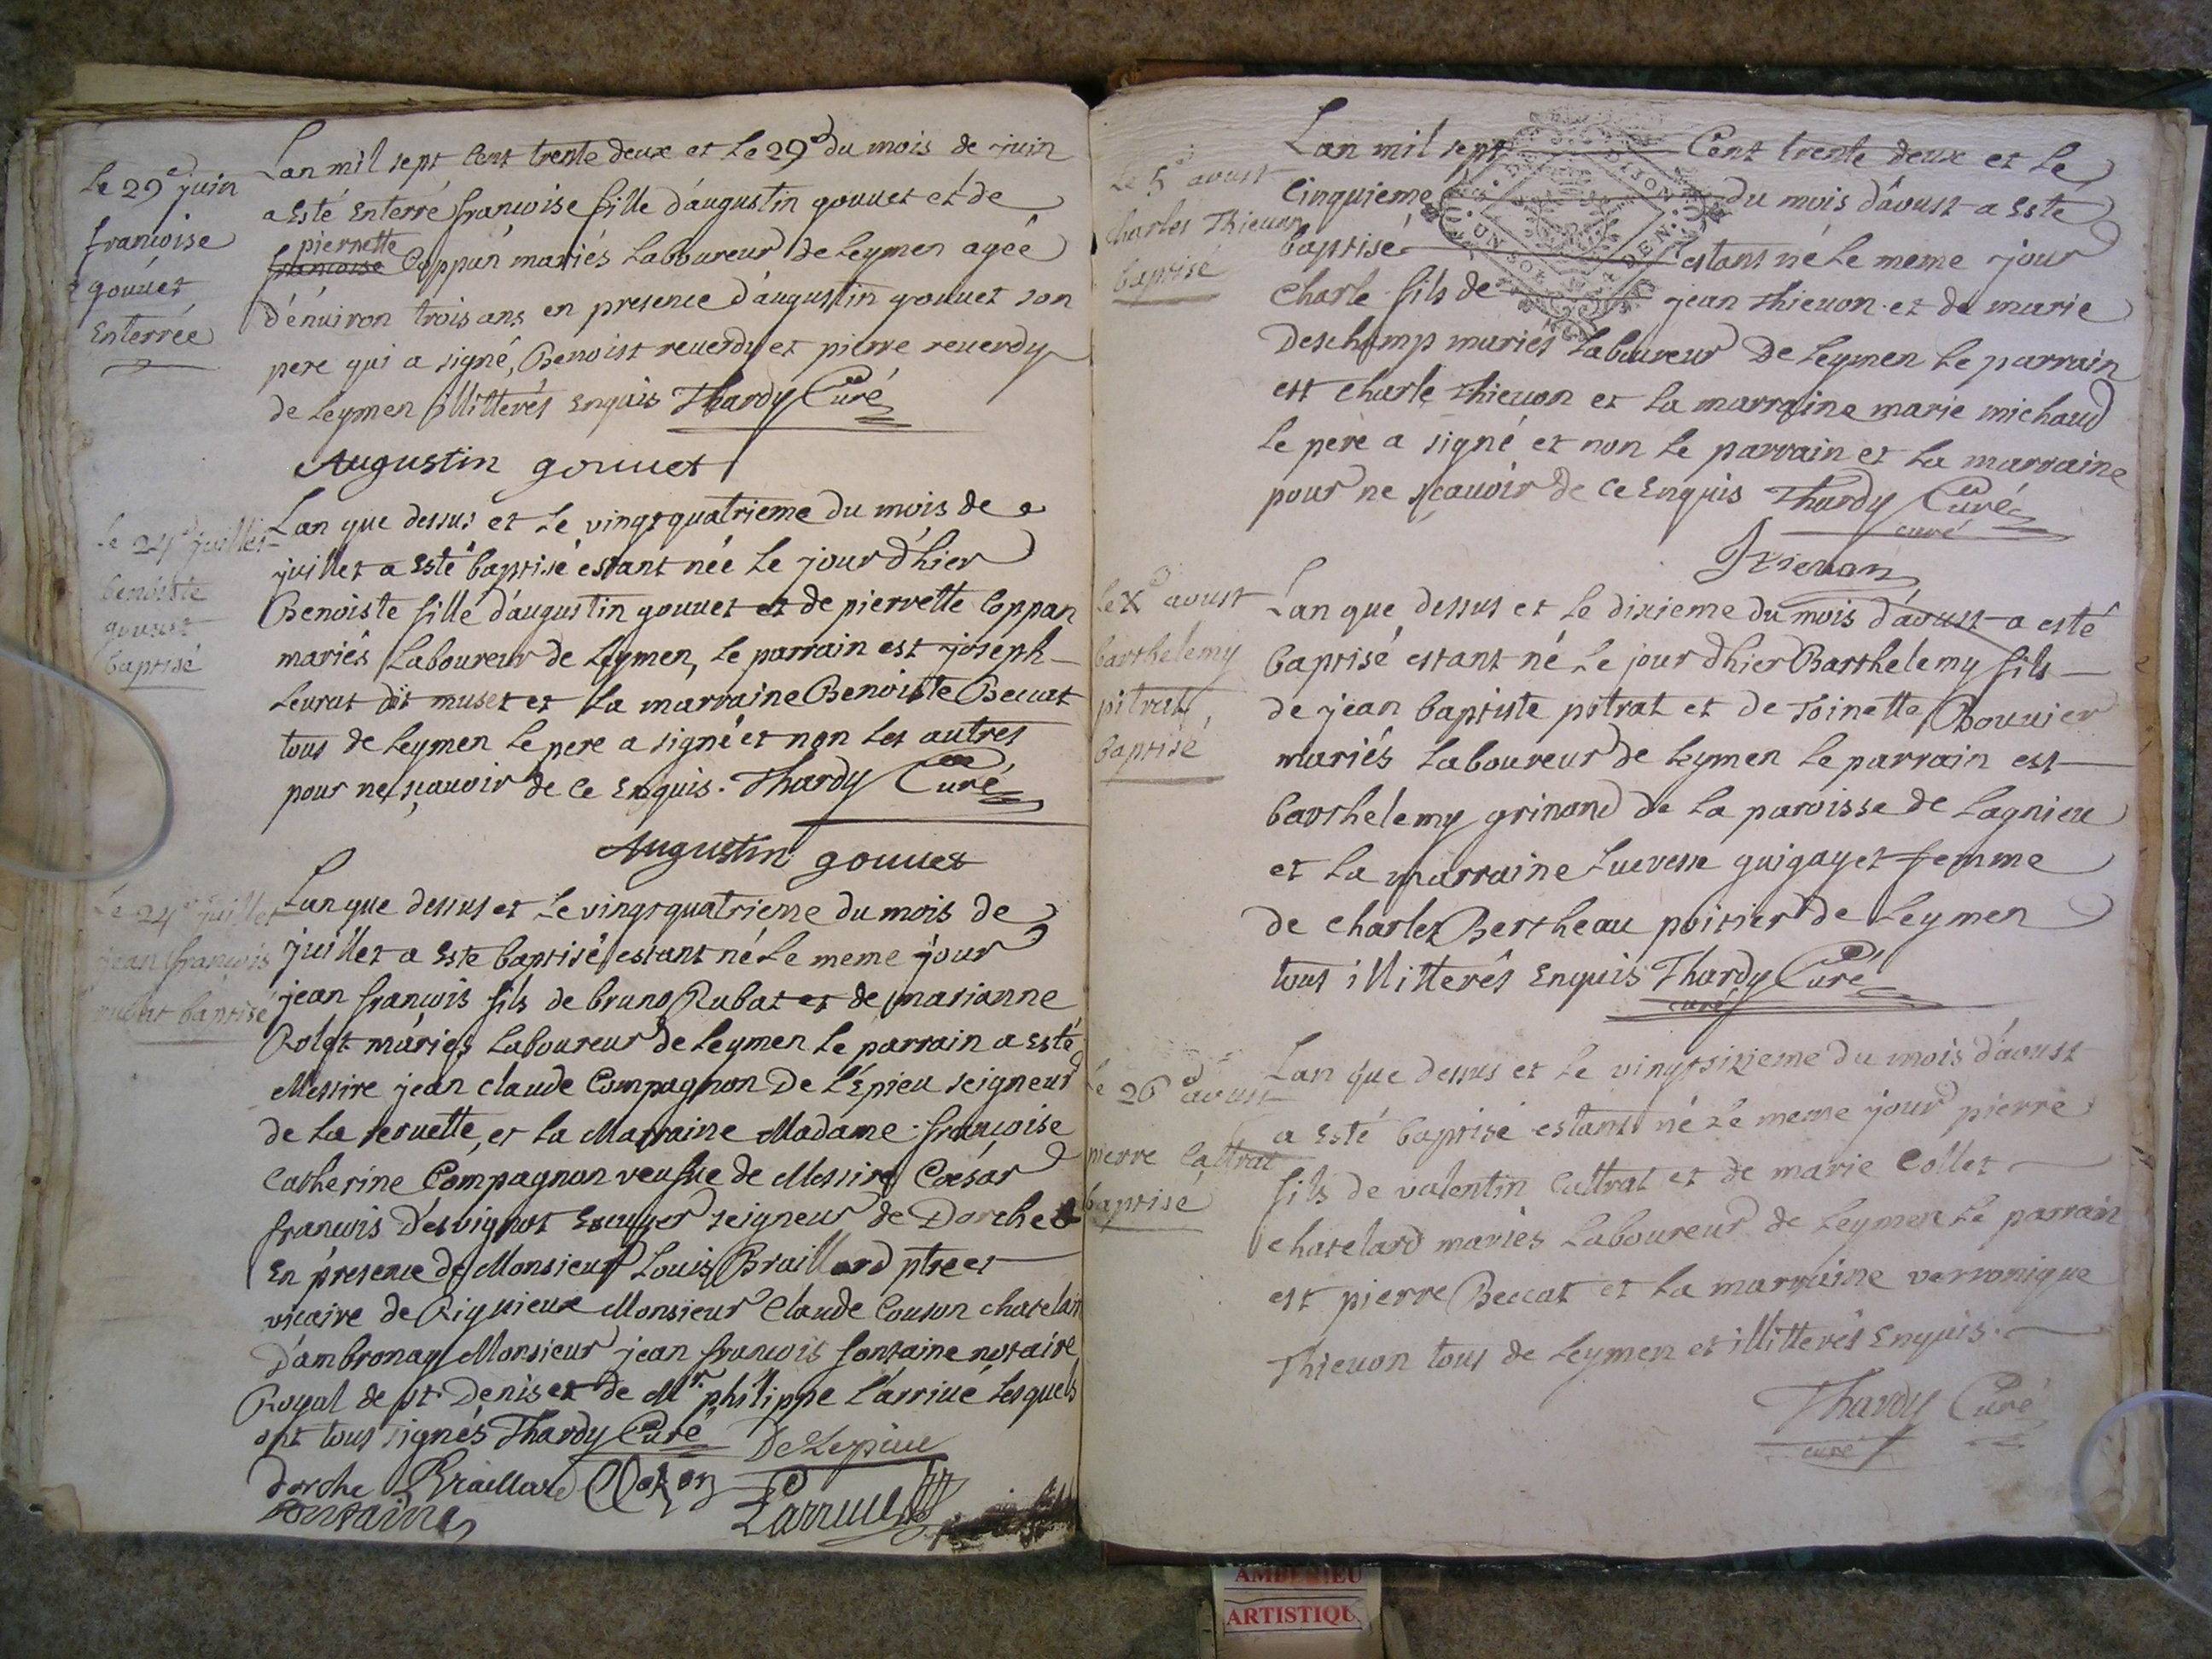 Le 29e juin
francoise
gouuet
Enterrée
Lan mil sept Cent trente deux et Le 29e du mois de juin
a Esté Enterré francoise fille d'augustin gouuet et de
pierrette
francoise Coppan mariés Laboureur de Leymen agée
d'enuiron trois ans en presence d'augustin gouuet son
pere qui a signé, Benoist reuerdy et pierre reuerdy
de Leymen illitterés Enquis Thardy Curé
Augustin gouuet
Le 24e juillet
benoiste
gouuet
baptisé
Lan que dessus et Le vingtquatrieme du mois de
juillet a Esté baptisé estant née Le jour d'hier
Benoiste fille d'augustin gouuet et de pierrette Coppan
mariés Laboureur de Leymen, Le parrain est joseph
Leurat dit muset et La marraine Benoiste Beccat
tous de Leymen Le pere a signé et non Les autres
pour ne sçauoir de Ce Enquis. Thardy Curé
Augustin gouuet
Le 24e juillet
jean francois
rubat baptisé
Lan que dessus et Le vingtquatrieme du mois de
juillet a Esté baptisé estant né Le meme jour
jean francois fils de bruno Rubat et de marianne
Rolet mariés Laboureur de Leymen Le parrain a Esté
Messire jean claude Compagnon De L'Epieu seigneur
de La seruette, et La Marraine Madame francoise
Catherine Compagnon veufue de Messire Coesar
francois D'esvignes Escuyer seigneur de Dorche
En presence de Monsieur Louis Braillard ptre et
vicaire de Rignieux Monsieur Claude Couson chatelain
D'ambronay Monsieur jean francois fontaine notaire
Royal de st. Denis et de Mr. philippe L'arriué Lesquels
ont tous signés Thardy Curé De Lepieu
dorche Braillard Couson
fontaine Larriué
Le 5e aoust
Charles Thieuon
baptisé
Lan mil sept Cent trente deux et Le
Cinquieme du mois d'aoust a Esté
baptisé estant né Le meme jour
Charle fils de jean Thieuon et de marie
Deschamp mariés Laboureur De Leymen Le parrain
est Charle Thieuon et La marraine marie michaud
Le pere a signé et non Le parrain et La marraine
pour ne sçauoir de Ce Enquis Thardy Curé
curé
Thieuon
Le Xe aoust
barthelemy
pitrat
baptisé
Lan que dessus et Le dixieme du mois d'aoust a esté
baptisé estant né Le jour d'hier Barthelemy fils
de jean baptiste pitrat et de Toinette Bouuier
mariés Laboureur de Leymen Le parrain est
barthelemy grinand de La paroisse de Lagnieu
et La marraine Lucresse guigayet femme
de charles Bertheau poitier de Leymen
tous illitterés Enquis Thardy Curé
curé
Le 26e aoust
pierre Cattrat
baptisé
Lan que dessus et Le vingtsixieme du mois d'aoust
a Esté baptisé estant né Le meme jour pierre
fils de valentin Cattrat et de marie Collet
Chatelard mariés Laboureur de Leymen Le parrain
est pierre Beccat et La marraine verronique
Thieuon tous de Leymen et illitterés Enquis.
Thardy Curé
curé
AMBERIEU
ARTISTIQU